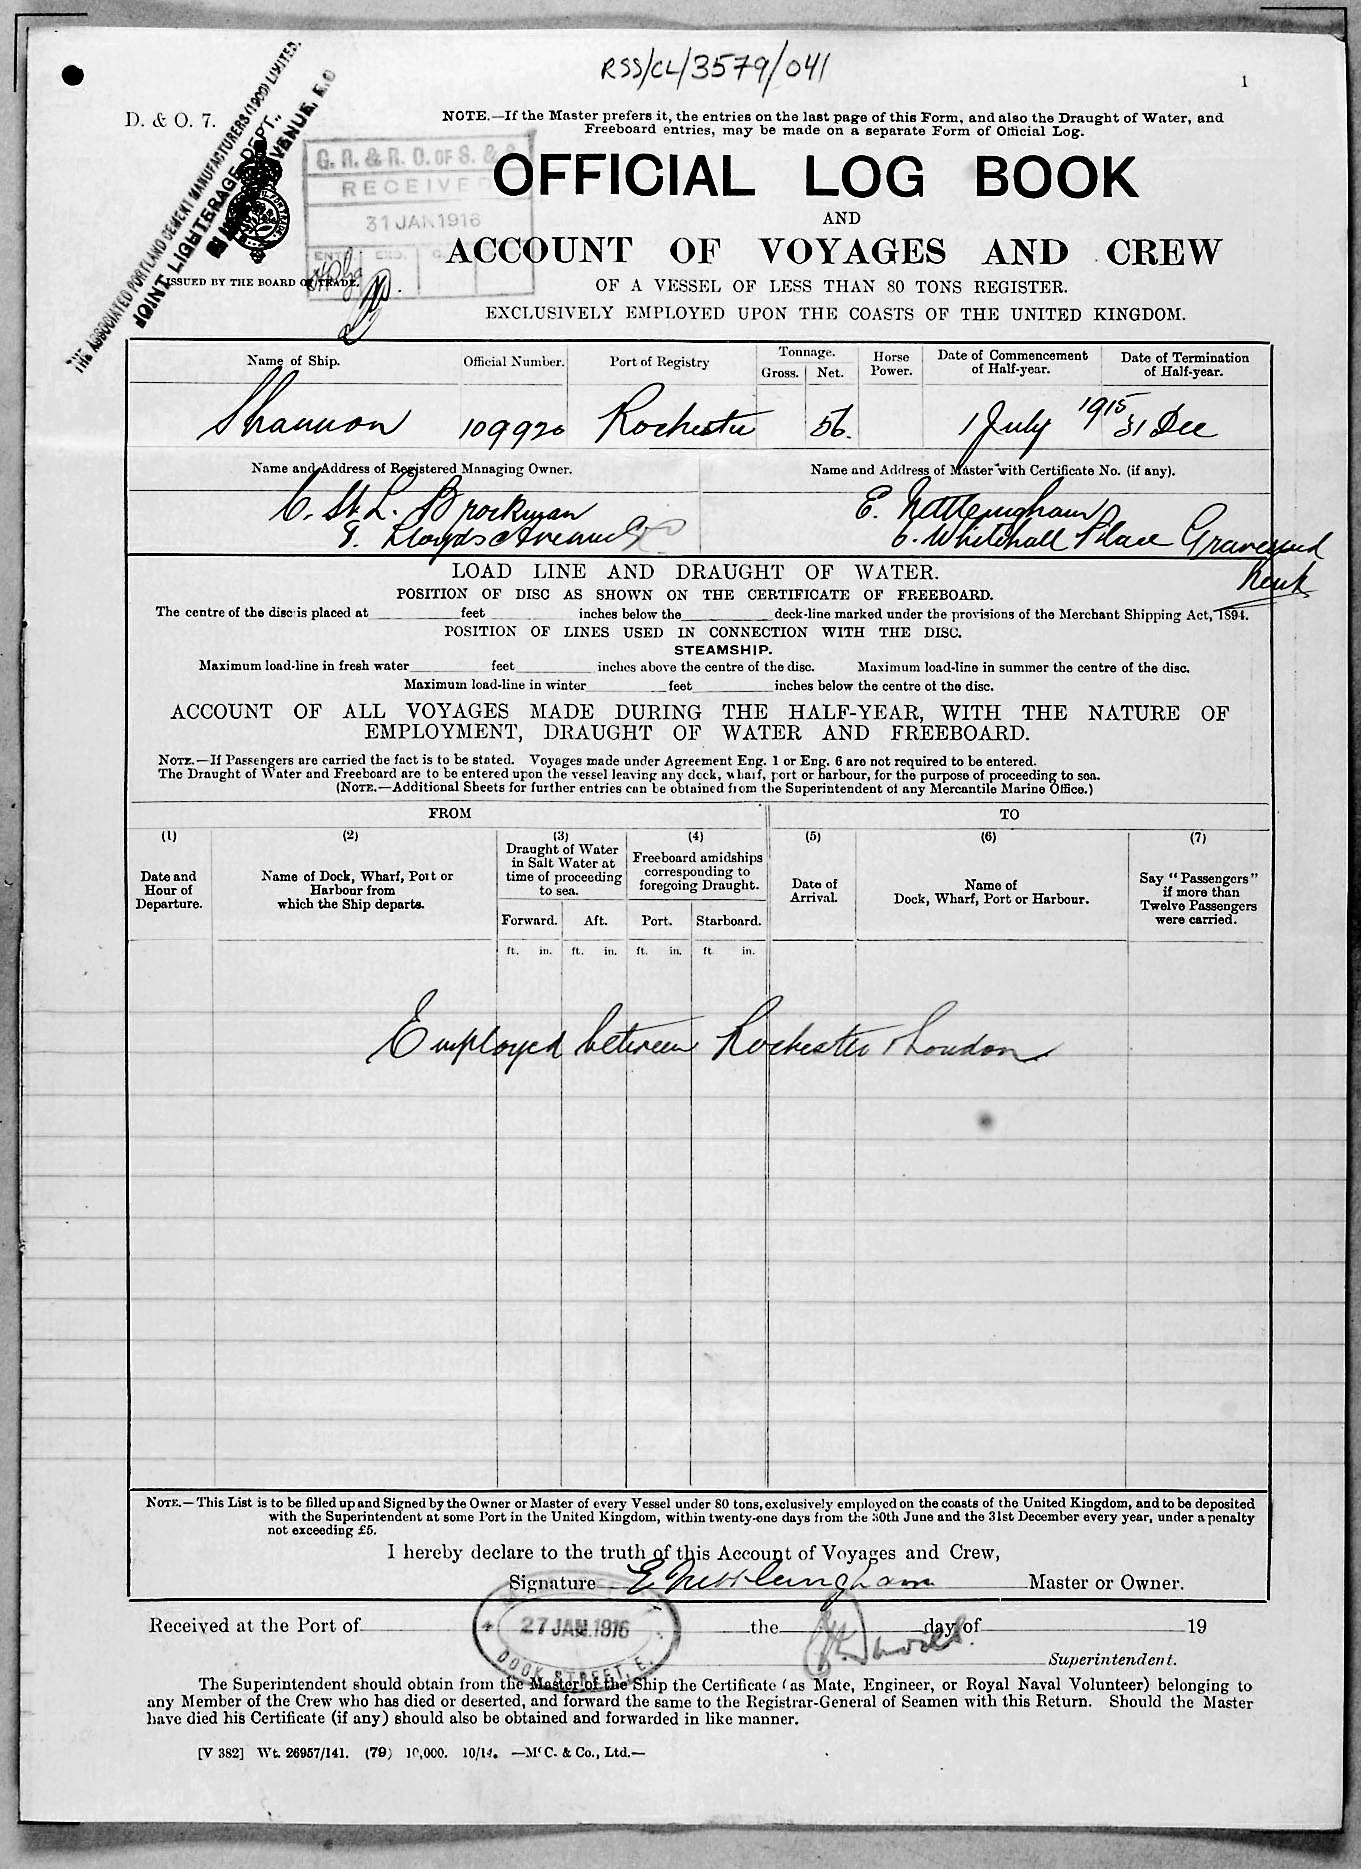 RSS/CL/3579/041
1
THE ASSOCIATED PORTLAND CEMENT MANUFACTURERS (1900) LIMITED.
JOINT LIGHTERAGE DEPT.,
AVENUE, E.C
D. & O. 7.
NOTE.—If the Master prefers it, the entries on the last page of this Form, and also the Draught of Water, and
Freeboard entries, may be made on a separate Form of Official Log.
RECEIVED
31 JAN 1916
OFFICIAL LOG BOOK
AND
ACCOUNT OF VOYAGES AND CREW
ISSUED BY THE BOARD OF TRADE.
OF A VESSEL OF LESS THAN 80 TONS REGISTER.
EXCLUSIVELY EMPLOYED UPON THE COASTS OF THE UNITED KINGDOM.
Name of Ship. Official Number. Port of Registry Tonnage. Gross. Net. Horse Power. Date of Commencement of Half-year. Date of Termination of Half-year.
Shannon 109920 Rochester 56. 1 July 1915 31 Dec
Name and Address of Registered Managing Owner. Name and Address of Master with Certificate No. (if any).
C. St. L. Brockman E. Nettlingham
Lloyds Avenue EC 6. Whitehall Place Gravesend
Kent
LOAD LINE AND DRAUGHT OF WATER.
POSITION OF DISC AS SHOWN ON THE CERTIFICATE OF FREEBOARD.
The centre of the disc is placed at feet inches below the deck-line marked under the provisions of the Merchant Shipping Act, 1894.
POSITION OF LINES USED IN CONNECTION WITH THE DISC.
STEAMSHIP.
Maximum load-line in fresh water feet inches above the centre of the disc. Maximum load-line in summer the centre of the disc.
Maximum load-line in winter feet inches below the centre of the disc.
ACCOUNT OF ALL VOYAGES MADE DURING THE HALF-YEAR, WITH THE NATURE OF
EMPLOYMENT, DRAUGHT OF WATER AND FREEBOARD.
NOTE.—If Passengers are carried the fact is to be stated. Voyages made under Agreement Eng. 1 or Eng. 6 are not required to be entered.
The Draught of Water and Freeboard are to be entered upon the vessel leaving any dock, wharf, port or harbour, for the purpose of proceeding to sea.
(NOTE.—Additional Sheets for further entries can be obtained from the Superintendent of any Mercantile Marine Office.)
FROM TO
(1) (2) (3) (4) (5) (6) (7)
Date and Hour of Departure.
Name of Dock, Wharf, Port or Harbour from which the Ship departs.
Draught of Water in Salt Water at time of proceeding to sea.
Freeboard amidships corresponding to foregoing Draught.
Date of Arrival.
Name of Dock, Wharf, Port or Harbour.
Say "Passengers" if more than Twelve Passengers were carried.
Forward. Aft. Port. Starboard.
ft. in. ft. in. ft. in. ft in.
Employed between Rochester & London
NOTE.—This List is to be filled up and Signed by the Owner or Master of every Vessel under 80 tons, exclusively employed on the coasts of the United Kingdom, and to be deposited
with the Superintendent at some Port in the United Kingdom, within twenty-one days from the 30th June and the 31st December every year, under a penalty
not exceeding £5.
I hereby declare to the truth of this Account of Voyages and Crew,
Signature E Nettlingham Master or Owner.
Received at the Port of the day of 19
27 JAN. 1916
DOCK STREET, E.
Superintendent.
The Superintendent should obtain from the Master of the Ship the Certificate (as Mate, Engineer, or Royal Naval Volunteer) belonging to
any Member of the Crew who has died or deserted, and forward the same to the Registrar-General of Seamen with this Return. Should the Master
have died his Certificate (if any) should also be obtained and forwarded in like manner.
[V 382] Wt. 26957/141. (79) 10,000. 10/14. —McC. & Co., Ltd.—